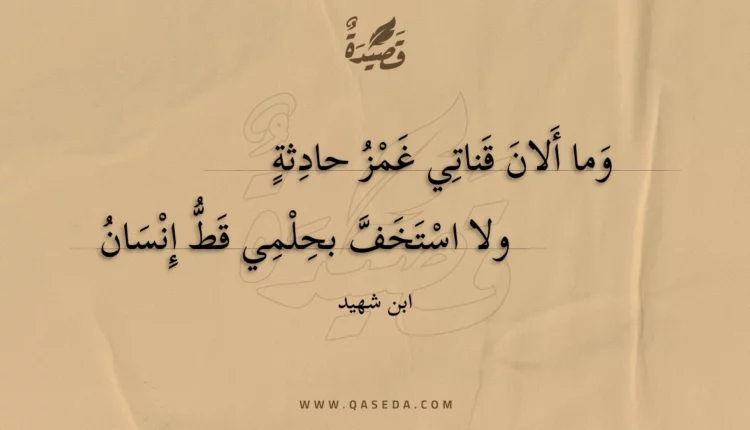 قَصِيْدَةٌ
وَما أَلانَ قَناتِي غَمْزُ حادِثةٍ
ولا اسْتَخَفَّ بحِلْمِي قَطُّ إِنْسَانُ
ابن شهيد
WWW.QASEDA.COM